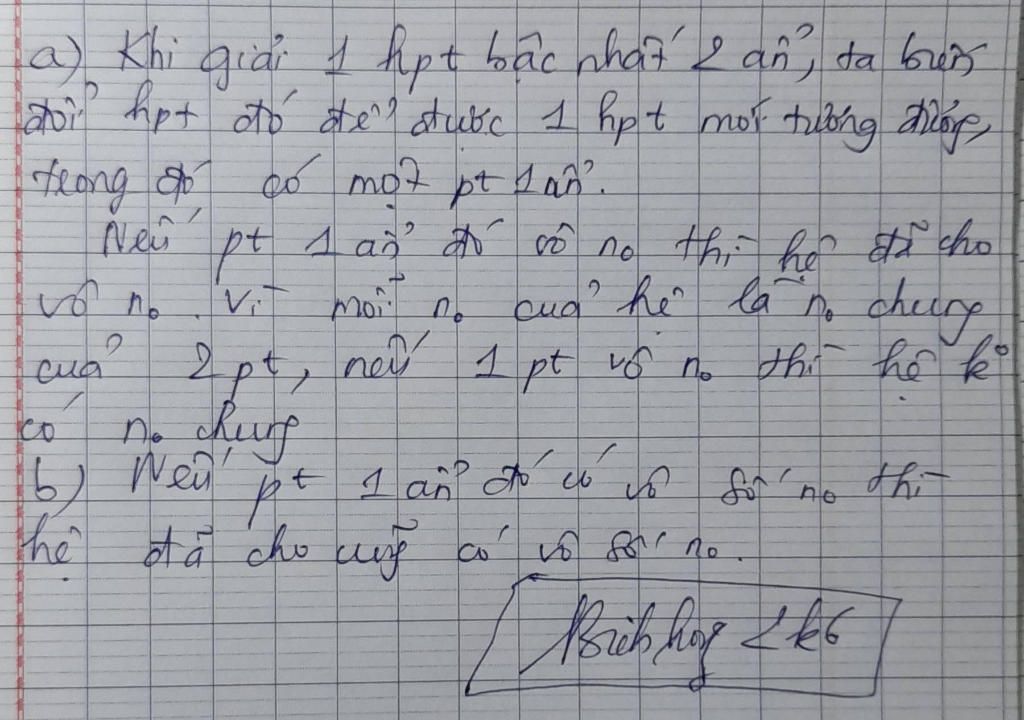 a) Khi giải 1 hpt bậc nhất 2 ẩn, ta biến
đổi hpt đó để được 1 hpt mới tương đương,
trong đó có một pt 1 ẩn.
Nếu pt 1 ẩn đó vô no thì hệ đã cho
vô no. Vì mỗi no của hệ là no chung
của 2 pt, nếu 1 pt vô no thì hệ k°
có no chung
b) Nếu pt 1 ẩn đó có vô số no thì
hệ đã cho cũng có vô số no.